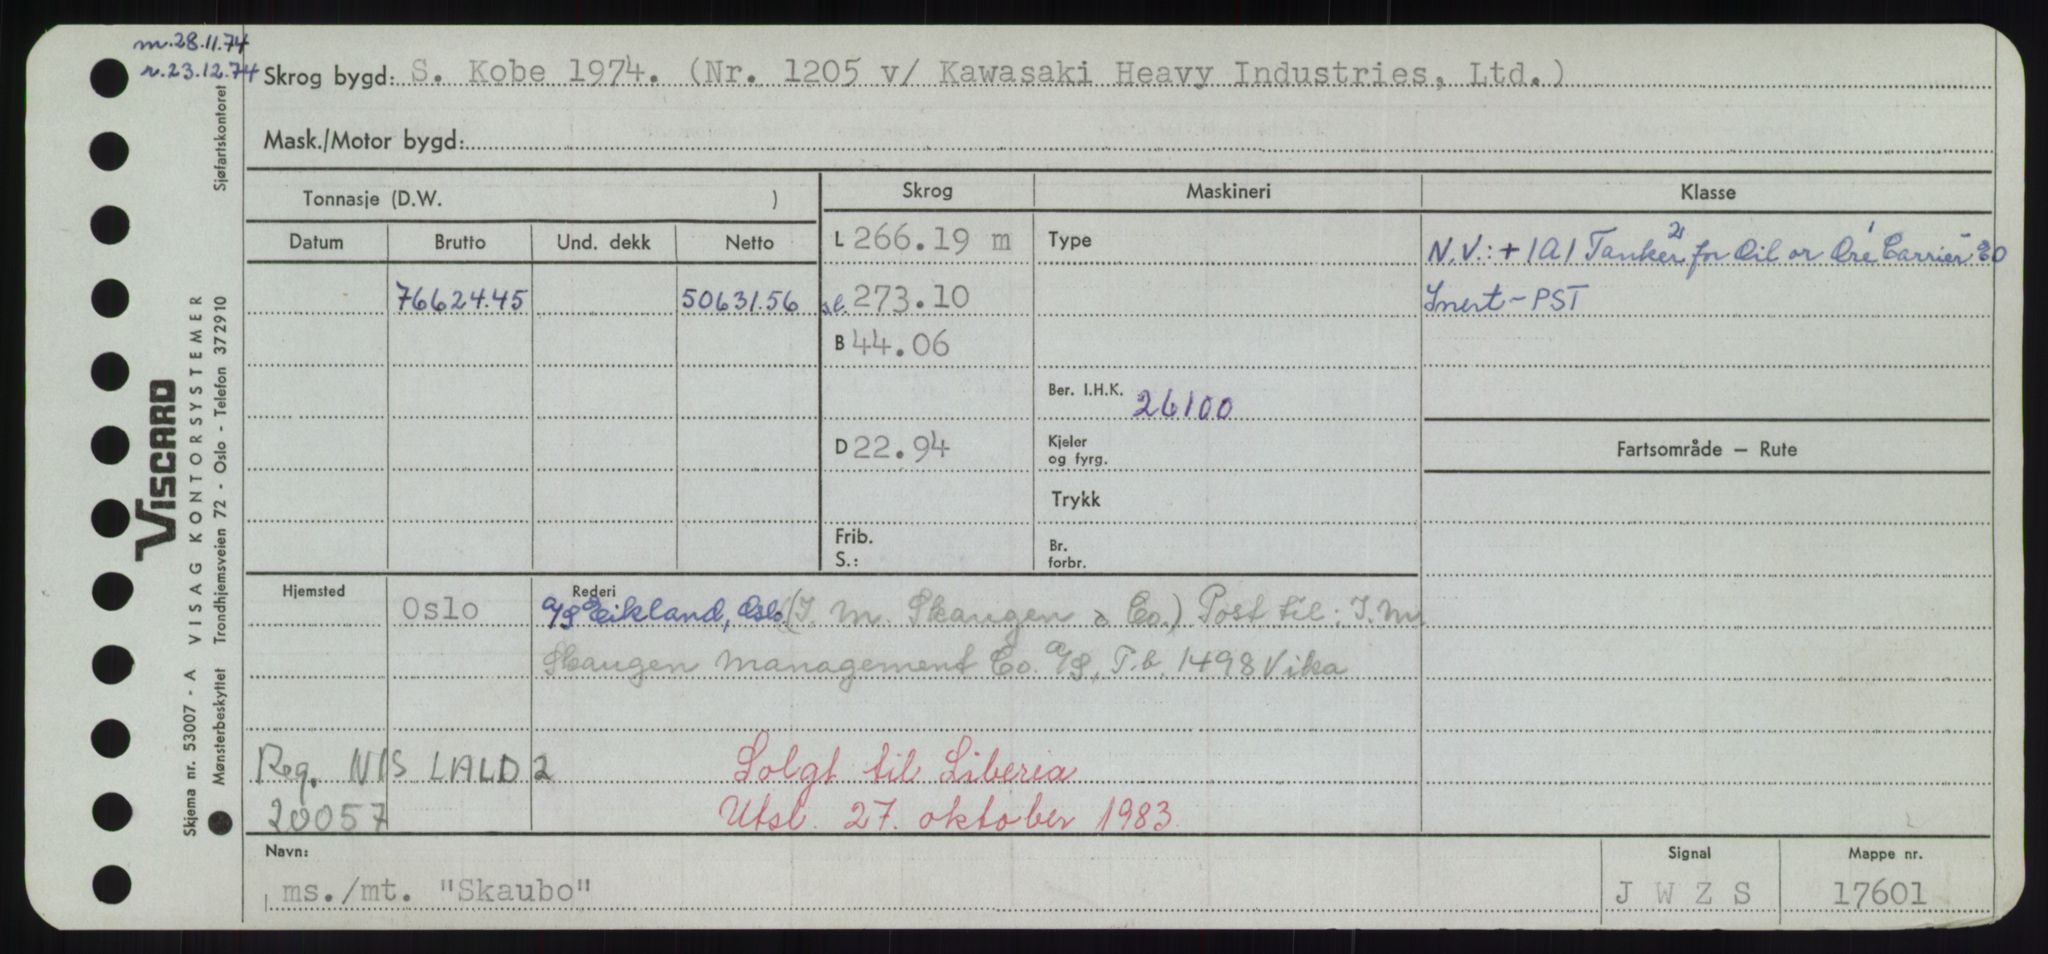 m.28.11.74
r.23.12.74
Skrog bygd: S. Kobe 1974. (Nr. 1205 v/ Kawasaki Heavy Industries, Ltd.)
Mask./Motor bygd:
Tonnasje (D.W. )
Skrog Maskineri Klasse
Datum Brutto Und. dekk Netto
L 266.19 m Type
N.V.: + 1A1 Tanker for Oil or Ore Carrier
76624.45 50631.56 sl. 273.10 Inert-PST
B 44.06
Ber. I.H.K. 26100
D 22.94 Kjeler og fyrg.
Fartsområde — Rute
Trykk
Frib. S.: Br. forbr.
Hjemsted Oslo Rederi A/S Eikland, Oslo (I. M. Skaugen & Co.) Post til: I.M.
Skaugen Management Co. A/S, P.b. 1498 Vika
Reg. NIS LALD2 Solgt til Liberia
20057 Utsl. 27. oktober 1983.
Navn: Signal Mappe nr.
ms./mt. "Skaubo" J W Z S 17601
VISCARD
Skjema nr. 53007 - A VISAG KONTORSYSTEMER
Mønsterbeskyttet Trondhjemsveien 72 - Oslo - Telefon 372910 Sjøfartskontoret